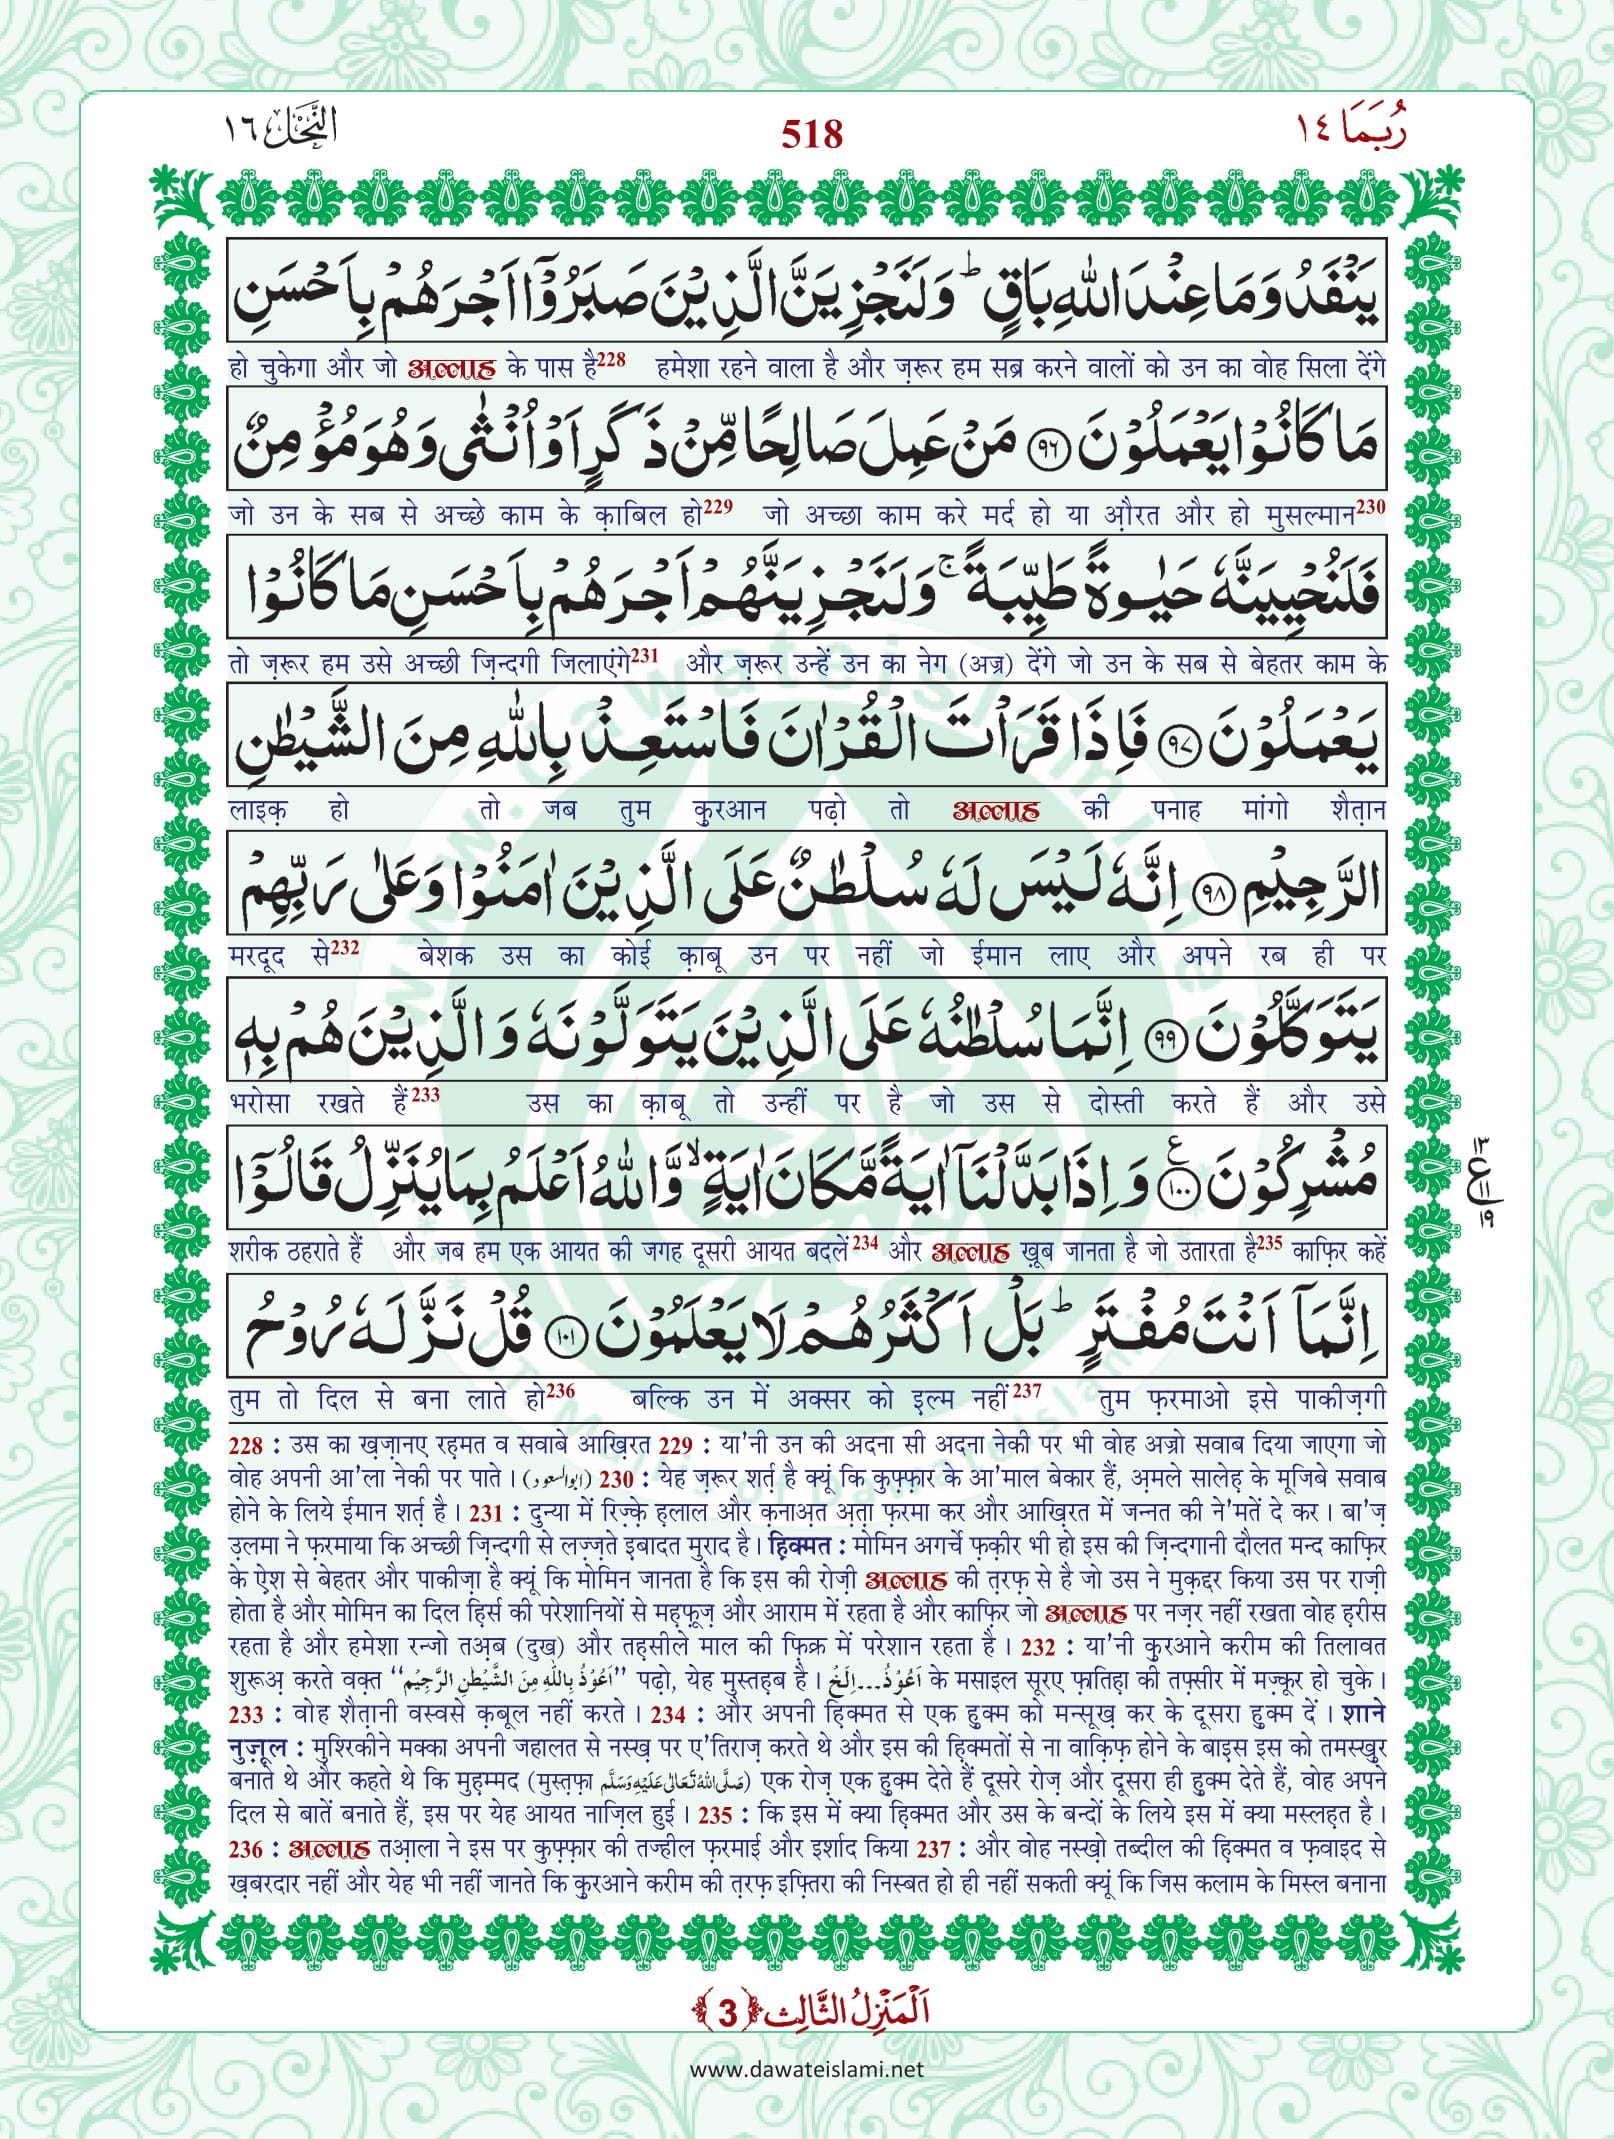 رُبَمَا ١٤
518
النَّحْل ١٦
يَنْفَدُ وَمَا عِنْدَ اللّٰهِ بَاقٍ ؕ وَلَنَجْزِيَنَّ الَّذِيْنَ صَبَرُوْۤا اَجْرَهُمْ بِاَحْسَنِ
हो चुकेगा और जो अल्लाह के पास है228 हमेशा रहने वाला है और ज़रूर हम सब्र करने वालों को उन का वोह सिला देंगे
مَا كَانُوْا يَعْمَلُوْنَ ﴿٩٦﴾ مَنْ عَمِلَ صَالِحًا مِّنْ ذَكَرٍ اَوْ اُنْثٰى وَهُوَ مُؤْمِنٌ
जो उन के सब से अच्छे काम के क़ाबिल हो229 जो अच्छा काम करे मर्द हो या औ़रत और हो मुसल्मान230
فَلَنُحْيِيَنَّهٗ حَيٰوةً طَيِّبَةً ۚ وَلَنَجْزِيَنَّهُمْ اَجْرَهُمْ بِاَحْسَنِ مَا كَانُوْا
तो ज़रूर हम उसे अच्छी ज़िन्दगी जिलाएंगे231 और ज़रूर उन्हें उन का नेग (अज्र) देंगे जो उन के सब से बेहतर काम के
يَعْمَلُوْنَ ﴿٩٧﴾ فَاِذَا قَرَاْتَ الْقُرْاٰنَ فَاسْتَعِذْ بِاللّٰهِ مِنَ الشَّيْطٰنِ
लाइक़ हो तो जब तुम क़ुरआन पढ़ो तो अल्लाह की पनाह मांगो शैत़ान
الرَّجِيْمِ ﴿٩٨﴾ اِنَّهٗ لَيْسَ لَهٗ سُلْطٰنٌ عَلَى الَّذِيْنَ اٰمَنُوْا وَعَلٰى رَبِّهِمْ
मरदूद से232 बेशक उस का कोई क़ाबू उन पर नहीं जो ईमान लाए और अपने रब ही पर
يَتَوَكَّلُوْنَ ﴿٩٩﴾ اِنَّمَا سُلْطٰنُهٗ عَلَى الَّذِيْنَ يَتَوَلَّوْنَهٗ وَالَّذِيْنَ هُمْ بِهٖ
भरोसा रखते हैं233 उस का क़ाबू तो उन्हीं पर है जो उस से दोस्ती करते हैं और उसे
مُشْرِكُوْنَ ﴿١٠٠﴾ۧ وَاِذَا بَدَّلْنَاۤ اٰيَةً مَّكَانَ اٰيَةٍ ۙ وَّاللّٰهُ اَعْلَمُ بِمَا يُنَزِّلُ قَالُوْۤا
١٣
ع
١١
١٩
शरीक ठहराते हैं और जब हम एक आयत की जगह दूसरी आयत बदलें234 और अल्लाह ख़ूब जानता है जो उतारता है235 काफ़िर कहें
اِنَّمَاۤ اَنْتَ مُفْتَرٍ ؕ بَلْ اَكْثَرُهُمْ لَا يَعْلَمُوْنَ ﴿١٠١﴾ قُلْ نَزَّلَهٗ رُوْحُ
तुम तो दिल से बना लाते हो236 बल्कि उन में अक्सर को इल्म नहीं237 तुम फ़रमाओ इसे पाकीज़गी
228 : उस का ख़ज़ानए रह़मत व सवाबे आख़िरत 229 : या'नी उन की अदना सी अदना नेकी पर भी वोह अज्रो सवाब दिया जाएगा जो
वोह अपनी आ'ला नेकी पर पाते । (ابوالسعود) 230 : येह ज़रूर शर्त़ है क्यूं कि कुफ़्फ़ार के आ'माल बेकार हैं, अ़मले सालेह़ के मूजिबे सवाब
होने के लिये ईमान शर्त़ है । 231 : दुन्या में रिज़्क़े ह़लाल और क़नाअ़त अ़त़ा फ़रमा कर और आख़िरत में जन्नत की ने'मतें दे कर । बा'ज़
उ़लमा ने फ़रमाया कि अच्छी ज़िन्दगी से लज़्ज़ते इ़बादत मुराद है । हि़क्मत : मोमिन अगर्चे फ़क़ीर भी हो इस की ज़िन्दगानी दौलत मन्द काफ़िर
के ऐ़श से बेहतर और पाकीज़ा है क्यूं कि मोमिन जानता है कि इस की रोज़ी अल्लाह की त़रफ़ से है जो उस ने मुक़द्दर किया उस पर राज़ी
होता है और मोमिन का दिल हि़र्स की परेशानियों से मह़फ़ूज़ और आराम में रहता है और काफ़िर जो अल्लाह पर नज़र नहीं रखता वोह ह़रीस
रहता है और हमेशा रन्जो तअ़ब (दुख) और तह़सीले माल की फ़िक्र में परेशान रहता है । 232 : या'नी क़ुरआने करीम की तिलावत
शुरूअ़ करते वक़्त ‘‘اَعُوْذُ بِاللّٰهِ مِنَ الشَّيْطٰنِ الرَّجِيْمِ’’ पढ़ो, येह मुस्तह़ब है । اَعُوْذُ...اِلَخْ के मसाइल सूरए फ़ातिह़ा की तफ़्सीर में मज़्कूर हो चुके ।
233 : वोह शैत़ानी वस्वसे क़बूल नहीं करते । 234 : और अपनी हि़क्मत से एक हुक्म को मन्सूख़ कर के दूसरा हुक्म दें । शाने
नुज़ूल : मुश्रिकीने मक्का अपनी जहालत से नस्ख़ पर ए'तिराज़ करते थे और इस की हि़क्मतों से ना वाक़िफ़ होने के बाइस इस को तमस्ख़ुर
बनाते थे और कहते थे कि मुह़म्मद (मुस्त़फ़ा صَلَّى اللهُ تَعَالٰى عَلَيْهِ وَسَلَّم) एक रोज़ एक हुक्म देते हैं दूसरे रोज़ और दूसरा ही हुक्म देते हैं, वोह अपने
दिल से बातें बनाते हैं, इस पर येह आयत नाज़िल हुई । 235 : कि इस में क्या हि़क्मत और उस के बन्दों के लिये इस में क्या मस्लह़त है ।
236 : अल्लाह तआ़ला ने इस पर कुफ़्फ़ार की तज्हील फ़रमाई और इर्शाद किया 237 : और वोह नस्ख़ो तब्दील की हि़क्मत व फ़वाइद से
ख़बरदार नहीं और येह भी नहीं जानते कि क़ुरआने करीम की त़रफ़ इफ़्तिरा की निस्बत हो ही नहीं सकती क्यूं कि जिस कलाम के मिस्ल बनाना
اَلْمَنْزِلُ الثَّالِث ﴿3﴾
www.dawateislami.net